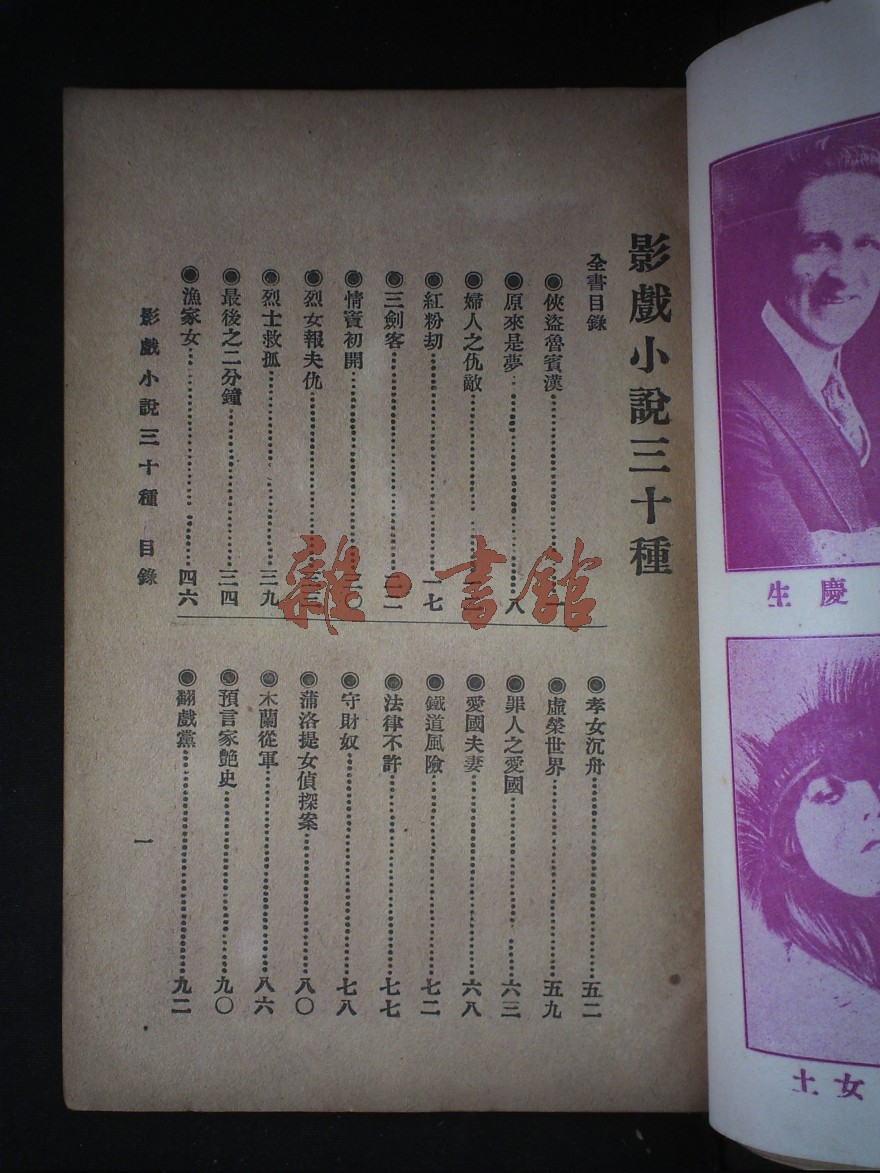 影戲小說三十種
全書目錄
◉俠盜魯賓漢……一
◉原來是夢……八
◉婦人之仇敵……
◉紅粉刧……一七
◉三劍客……二一
◉情竇初開……三〇
◉烈女報夫仇……三三
◉烈士救孤……三九
◉最後之二分鐘……三四
◉漁家女……四六
◉孝女沉舟……五二
◉虛榮世界……五九
◉罪人之愛國……六三
◉愛國夫妻……六八
◉鐵道風險……七二
◉法律不許……七七
◉守財奴……七八
◉蒲洛提女偵探案……八〇
◉木蘭從軍……八六
◉預言家艶史……九〇
◉翻戲黨……九二
影戲小說三十種 目錄
一
雜·書館
慶生
女士